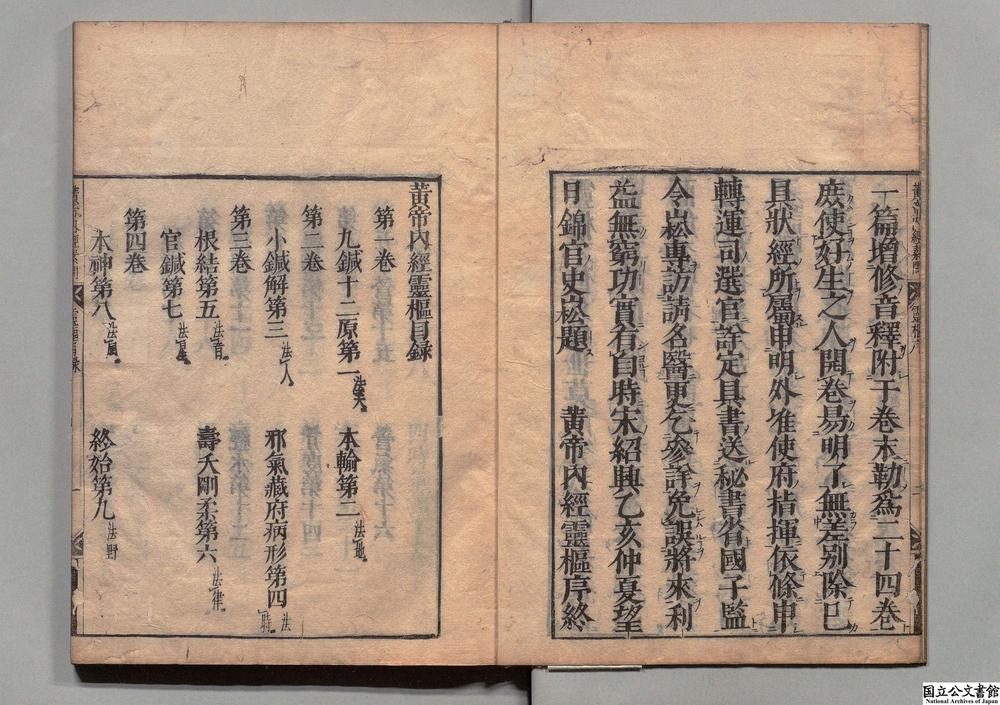 一篇增修音釋附于卷末勒為二十四卷
庻使好生之人開卷易明了無差別除已
具狀經所屬申明外准使府指揮依條申
轉運司選官詳定具書送秘書省國子監
令崧專訪請名醫更乞參詳免誤將來利
益無窮功實有自時宋紹興乙亥仲夏望
日錦官史崧題　黃帝內經靈樞序終
黃帝內經靈樞目録
第一卷
九鍼十二原第一 法天　本輸第二 法地
第二卷
小鍼解第三 法人　邪氣藏府病形第四 法時
第三卷
根結第五 法音　壽夭剛柔第六 法律
官鍼第七 法星
第四卷
本神第八 法風　終始第九 法野
国立公文書館
National Archives of Japan